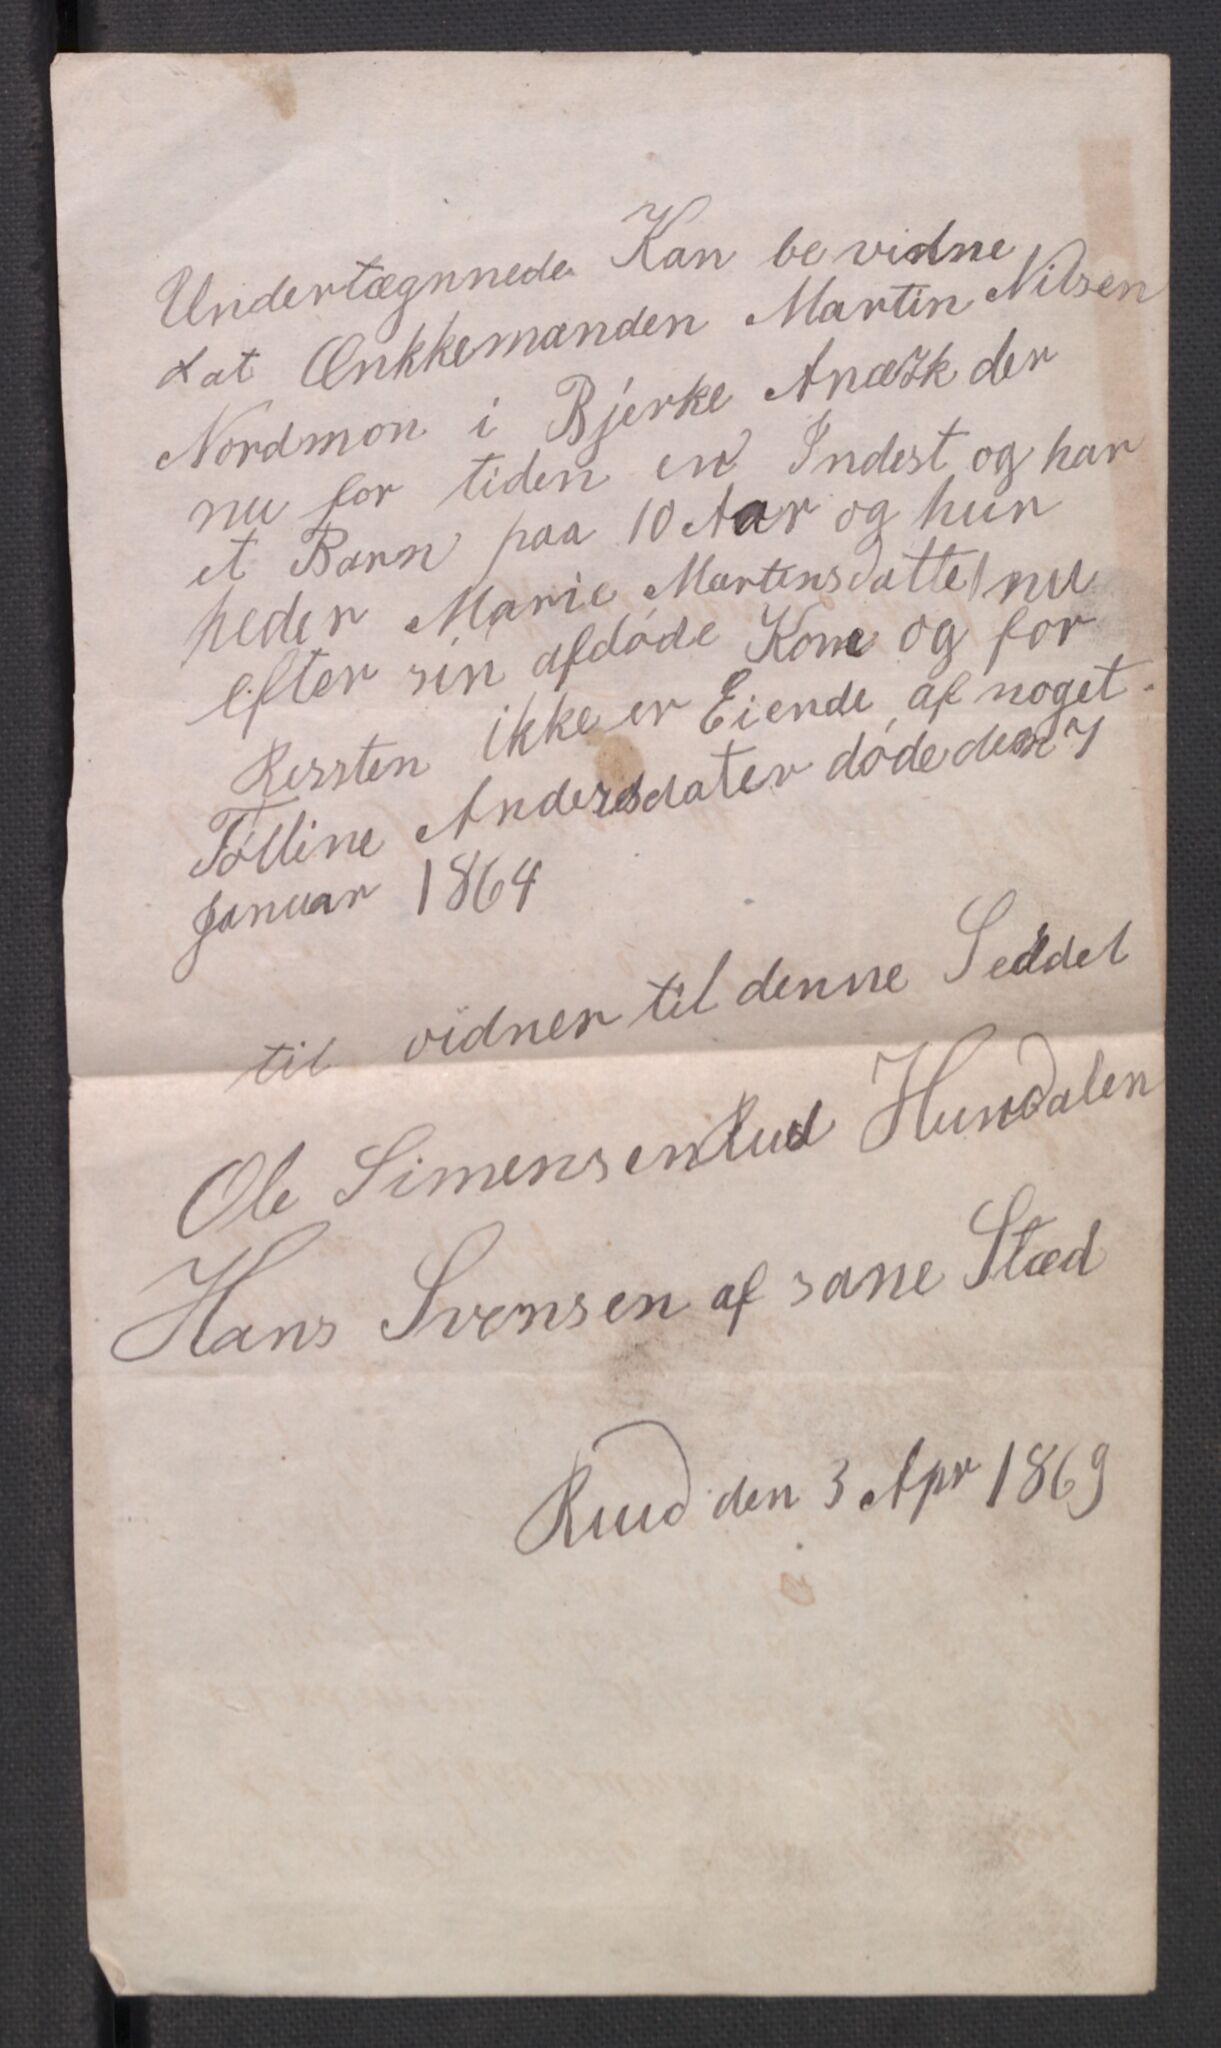 Undertægnnede Kan be vidne
at Œnkkemanden Martin Nilsen
Nordmon i Bjerke Anæxk der
nu for tiden en Indest og har
et Barn paa 10 Aar og hun
heder Marie Martinsdatter nu
efter sin afdøde Kone og for
Ressten ikke er Eiende af noget.
Tolline Andersdater døde den 7
Januar 1864
til vidner til denne Seddel
Ole Simensen Rud Hundalen
Hans Svensen af same Stæd
Ruud den 3 Apr 1869